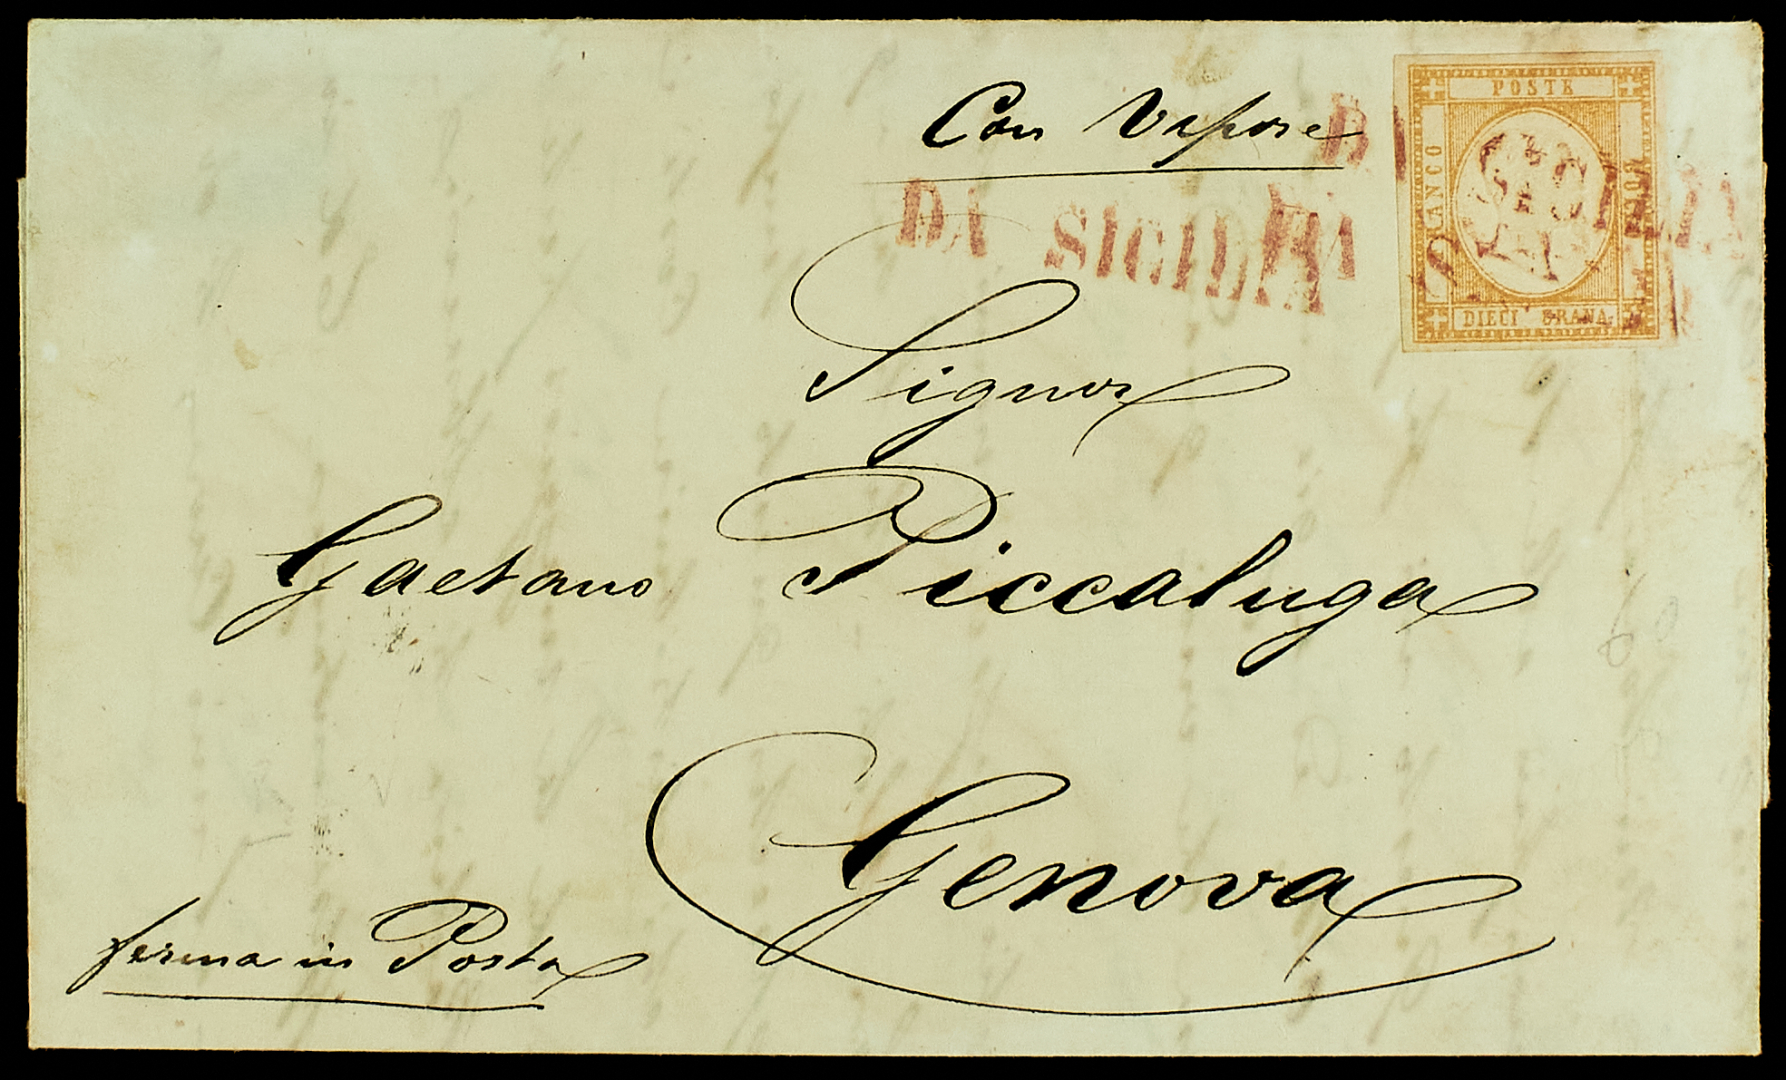 Con Vapore
POSTE
FRANCO
BOLLO
DIECI GRANA
DA SICILIA
Signor
Gaetano Piccaluga
Genova
ferma in Posta